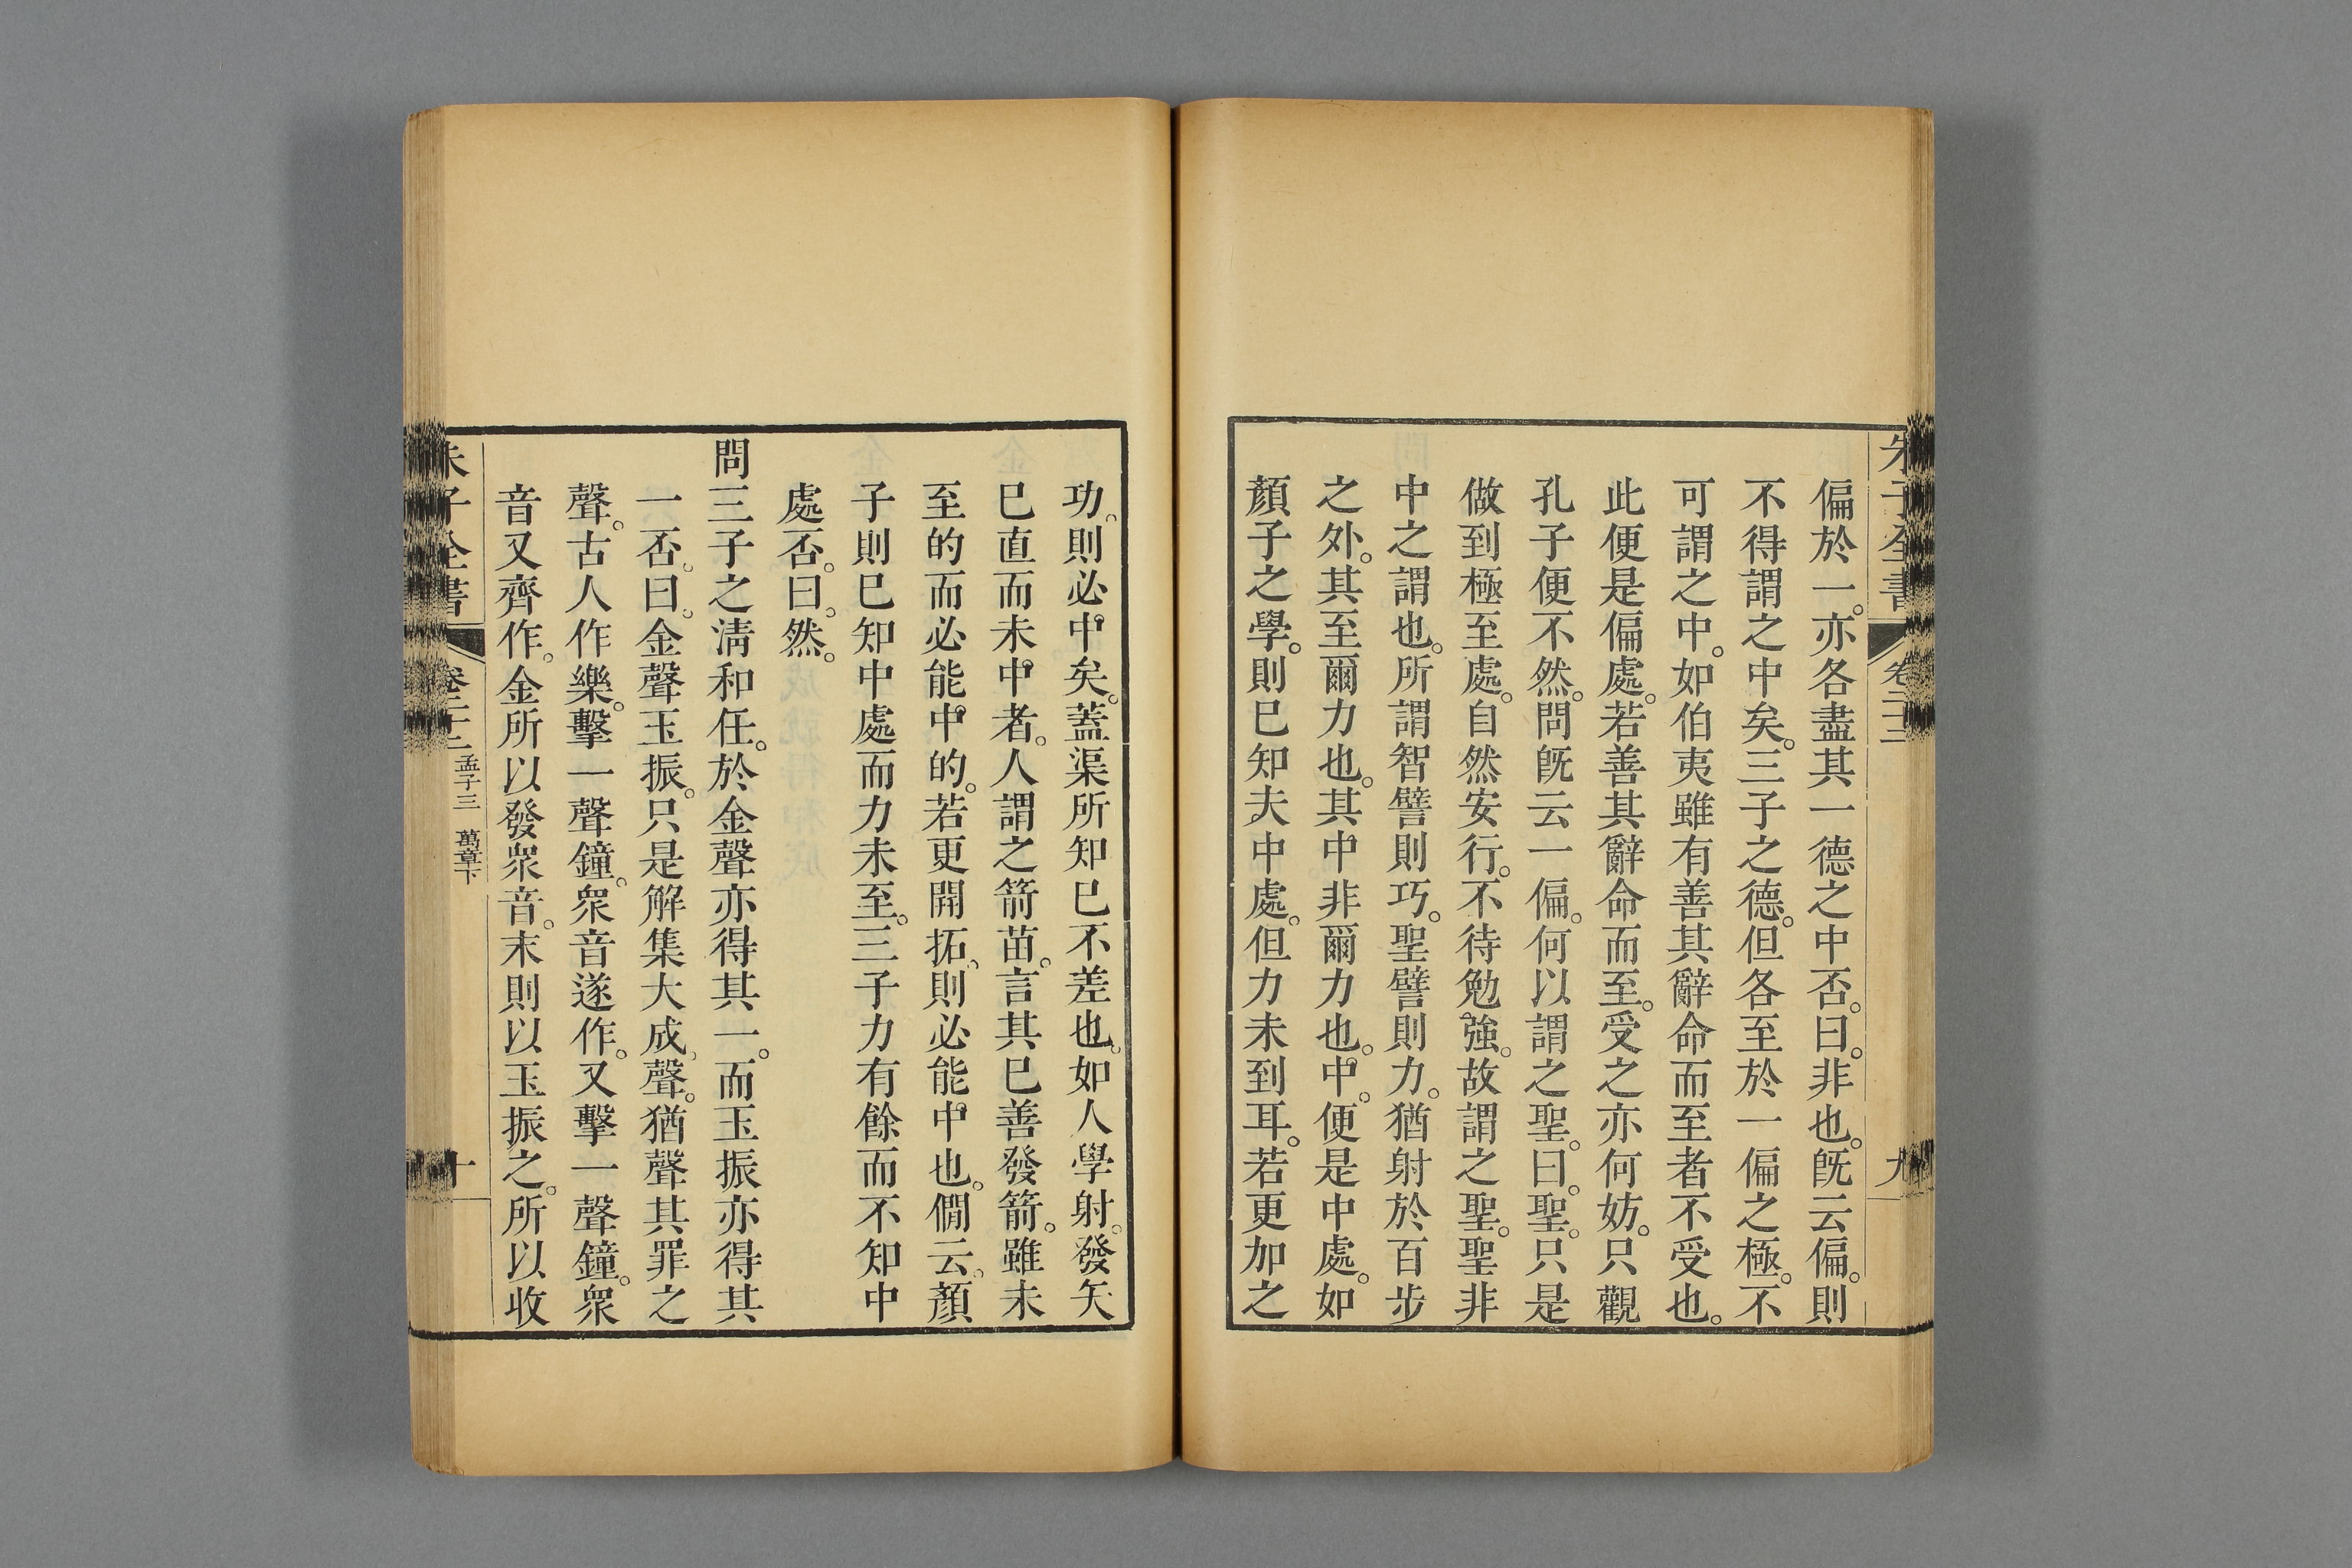 朱子全書 卷二十二 九
偏於一。亦各盡其一德之中否。曰。非也。旣云偏。則
不得謂之中矣。三子之德。但各至於一偏之極。不
可謂之中。如伯夷雖有善其辭命而至者不受也。
此便是偏處。若善其辭命而至。受之亦何妨。只觀
孔子便不然。問旣云一偏。何以謂之聖。曰。聖。只是
做到極至處。自然安行。不待勉強。故謂之聖。聖非
中之謂也。所謂智譬則巧。聖譬則力。猶射於百步
之外。其至爾力也。其中非爾力也。中。便是中處。如
顏子之學。則已知夫中處。但力未到耳。若更加之
功。則必中矣。蓋渠所知已不差也。如人學射。發矢
已直而未中者。人謂之箭苗。言其已善發箭。雖未
至的而必能中的。若更開拓。則必能中也。僩云。顏
子則已知中處而力未至。三子力有餘而不知中
處否。曰。然。
問三子之淸和任。於金聲亦得其一。而玉振亦得其
一否。曰。金聲玉振。只是解集大成。聲。猶聲其罪之
聲。古人作樂。擊一聲鐘。衆音遂作。又擊一聲鐘。衆
音又齊作。金所以發衆音。末則以玉振之。所以收
朱子全書 卷二十二 孟子三 萬章下 十